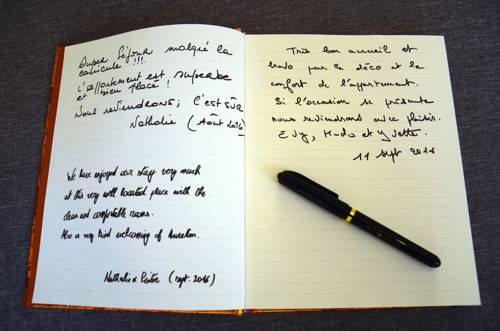 Super Séjour malgré la
canicule !!!
L'appartement est superbe
et bien placé !
Nous reviendrons, c'est sûr
Nathalie (Août 2016
We have enjoyed our stay very much
at this very well located place with the
clean and comfortable rooms.
Also a very kind welcoming of Aurelien.
Nathalie & Peter (sept. 2016)
Très bon accueil et
bravo pour la déco et le
confort de l'appartement.
Si l'occasion se présente
nous reviendrons avec plaisir.
et Yvette.
11 sept 2016